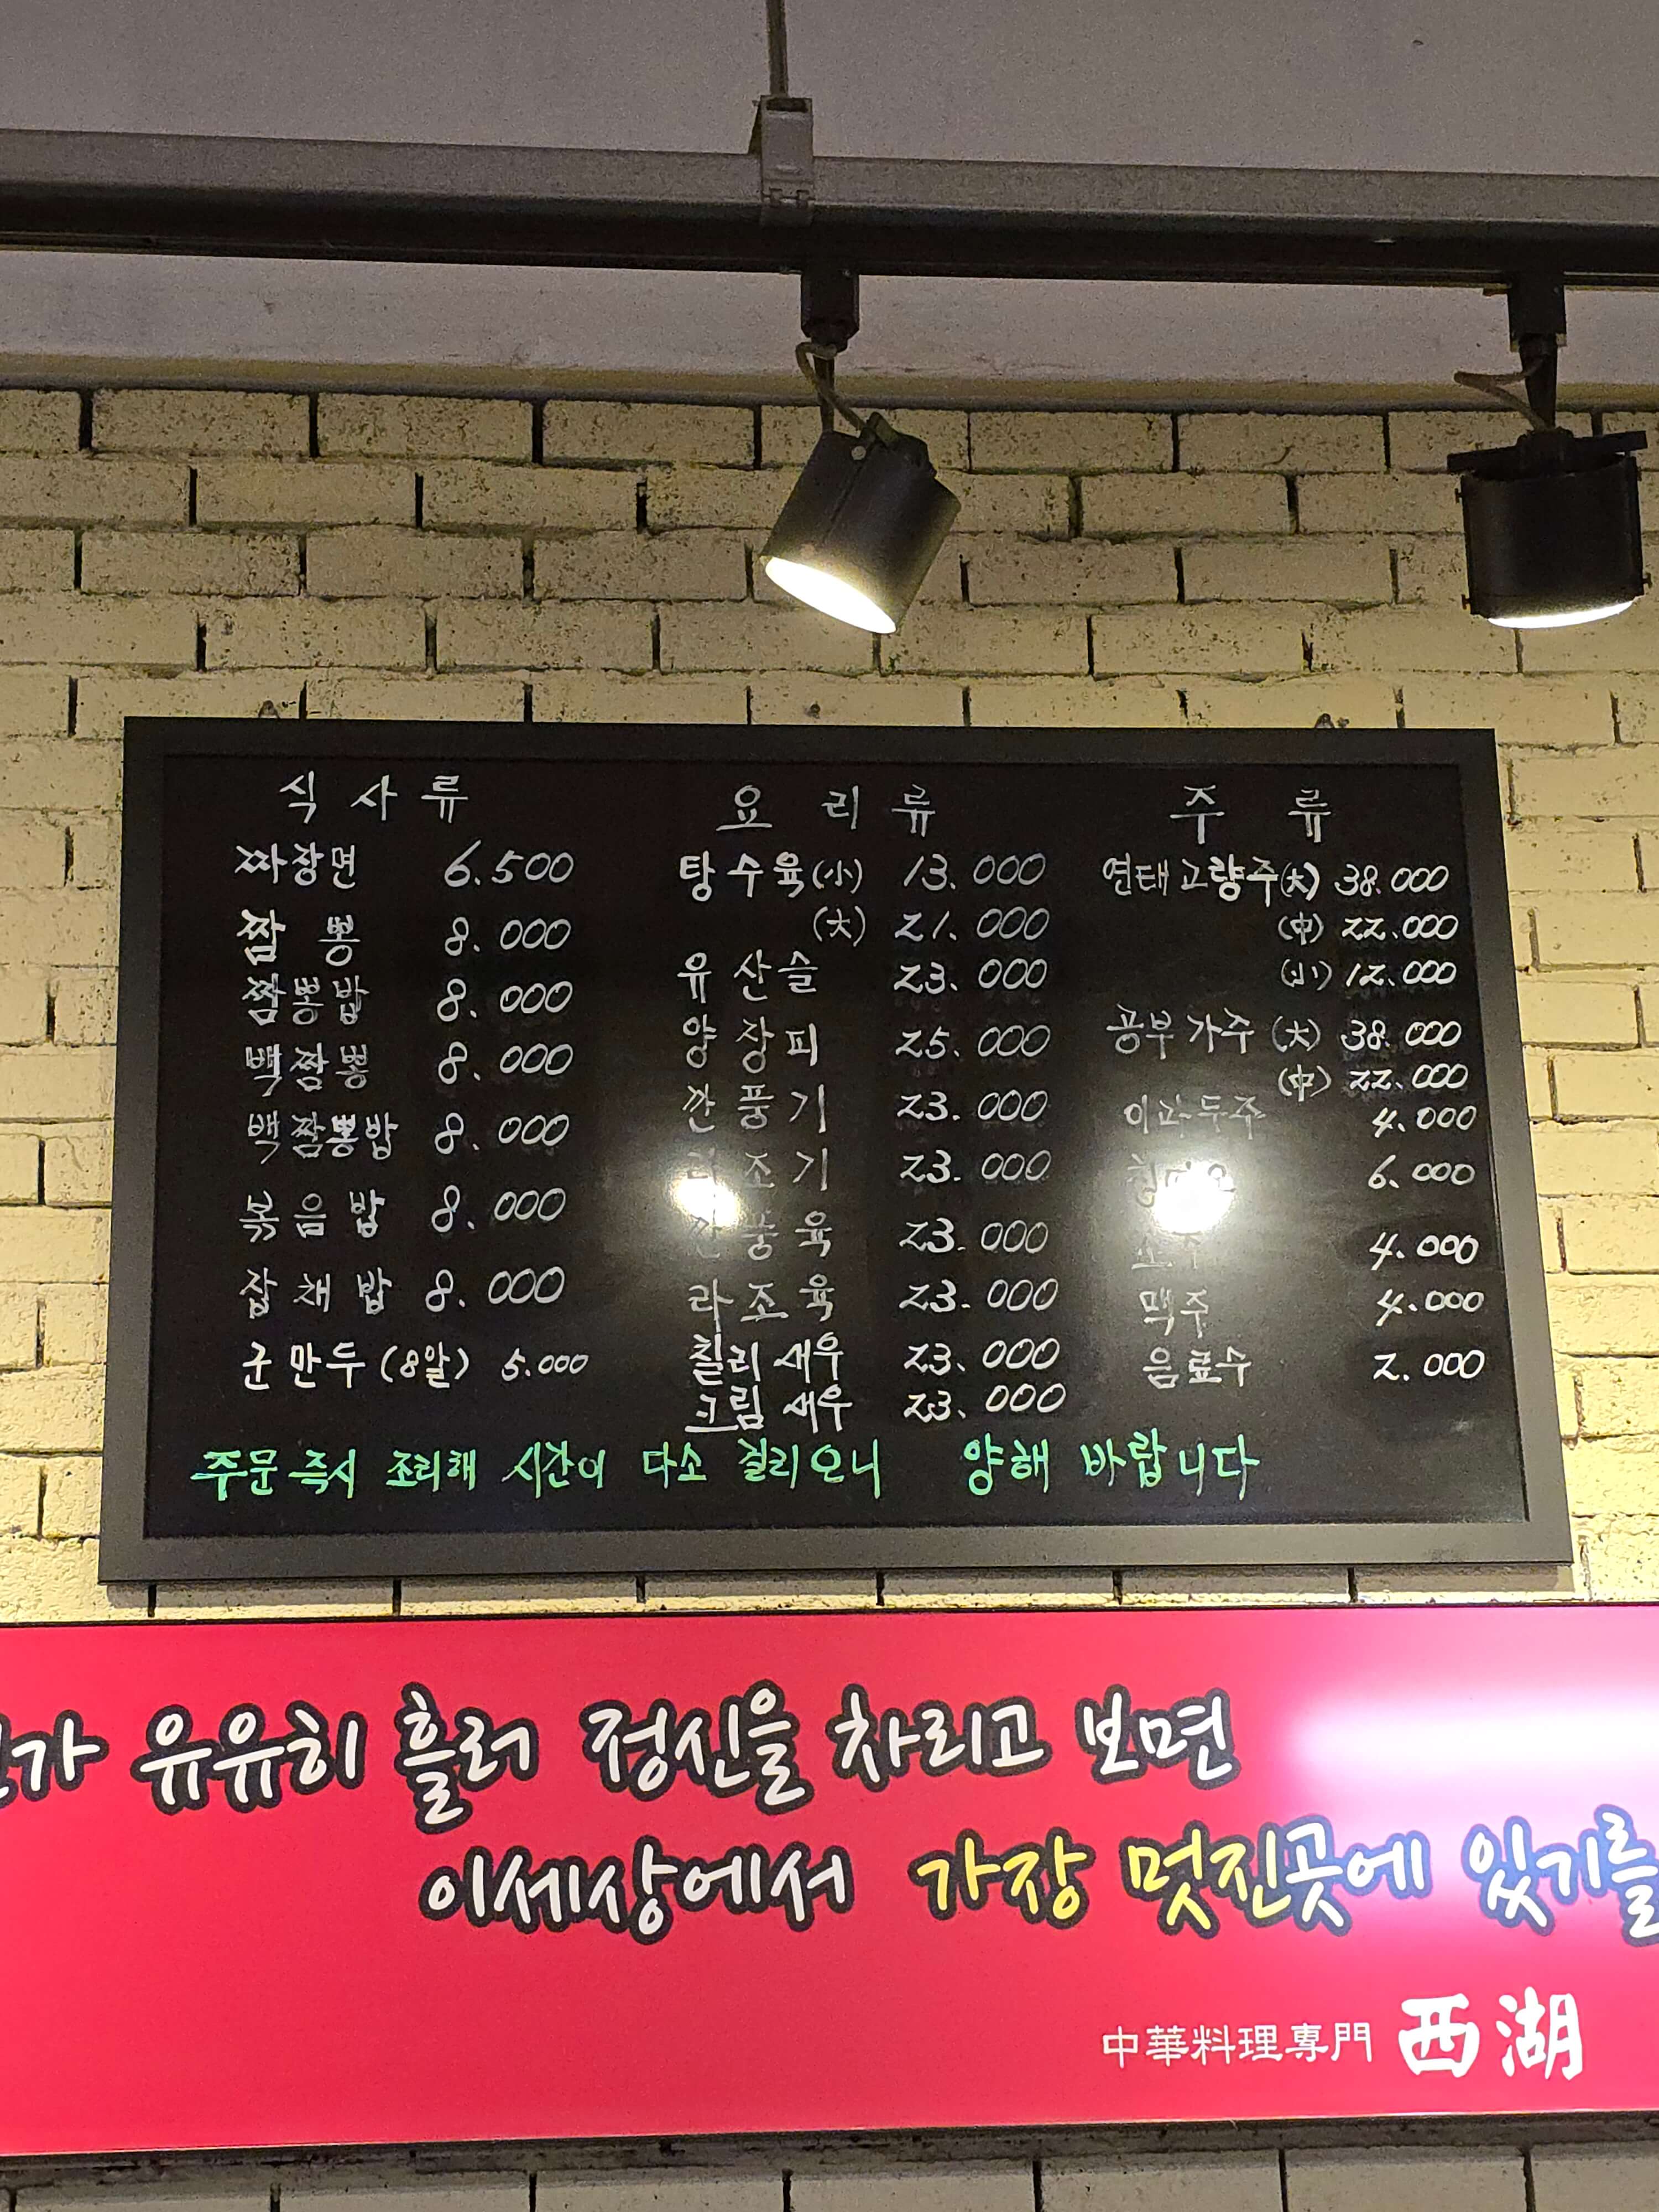 식사류
짜장면 6.500
짬뽕 8.000
짬뽕밥 8.000
백짬뽕 8.000
백짬뽕밥 8.000
볶음밥 8.000
잡채밥 8.000
군만두(8알) 5.000
요리류
탕수육(小) 13.000
(大) 21.000
유산슬 23.000
양장피 25.000
깐풍기 23.000
라조기 23.000
깐풍육 23.000
라조육 23.000
칠리새우 23.000
크림새우 23.000
주류
연태고량주(大) 38.000
(中) 22.000
(小) 12.000
공부가주 (大) 38.000
(中) 22.000
이과두주 4.000
6.000
소주 4.000
맥주 4.000
음료수 2.000
주문즉시 조리해 시간이 다소 걸리오니 양해 바랍니다
유유히 흘러 정신을 차리고 보면
이세상에서 가장 멋진곳에 있기를
中華料理専門 西湖